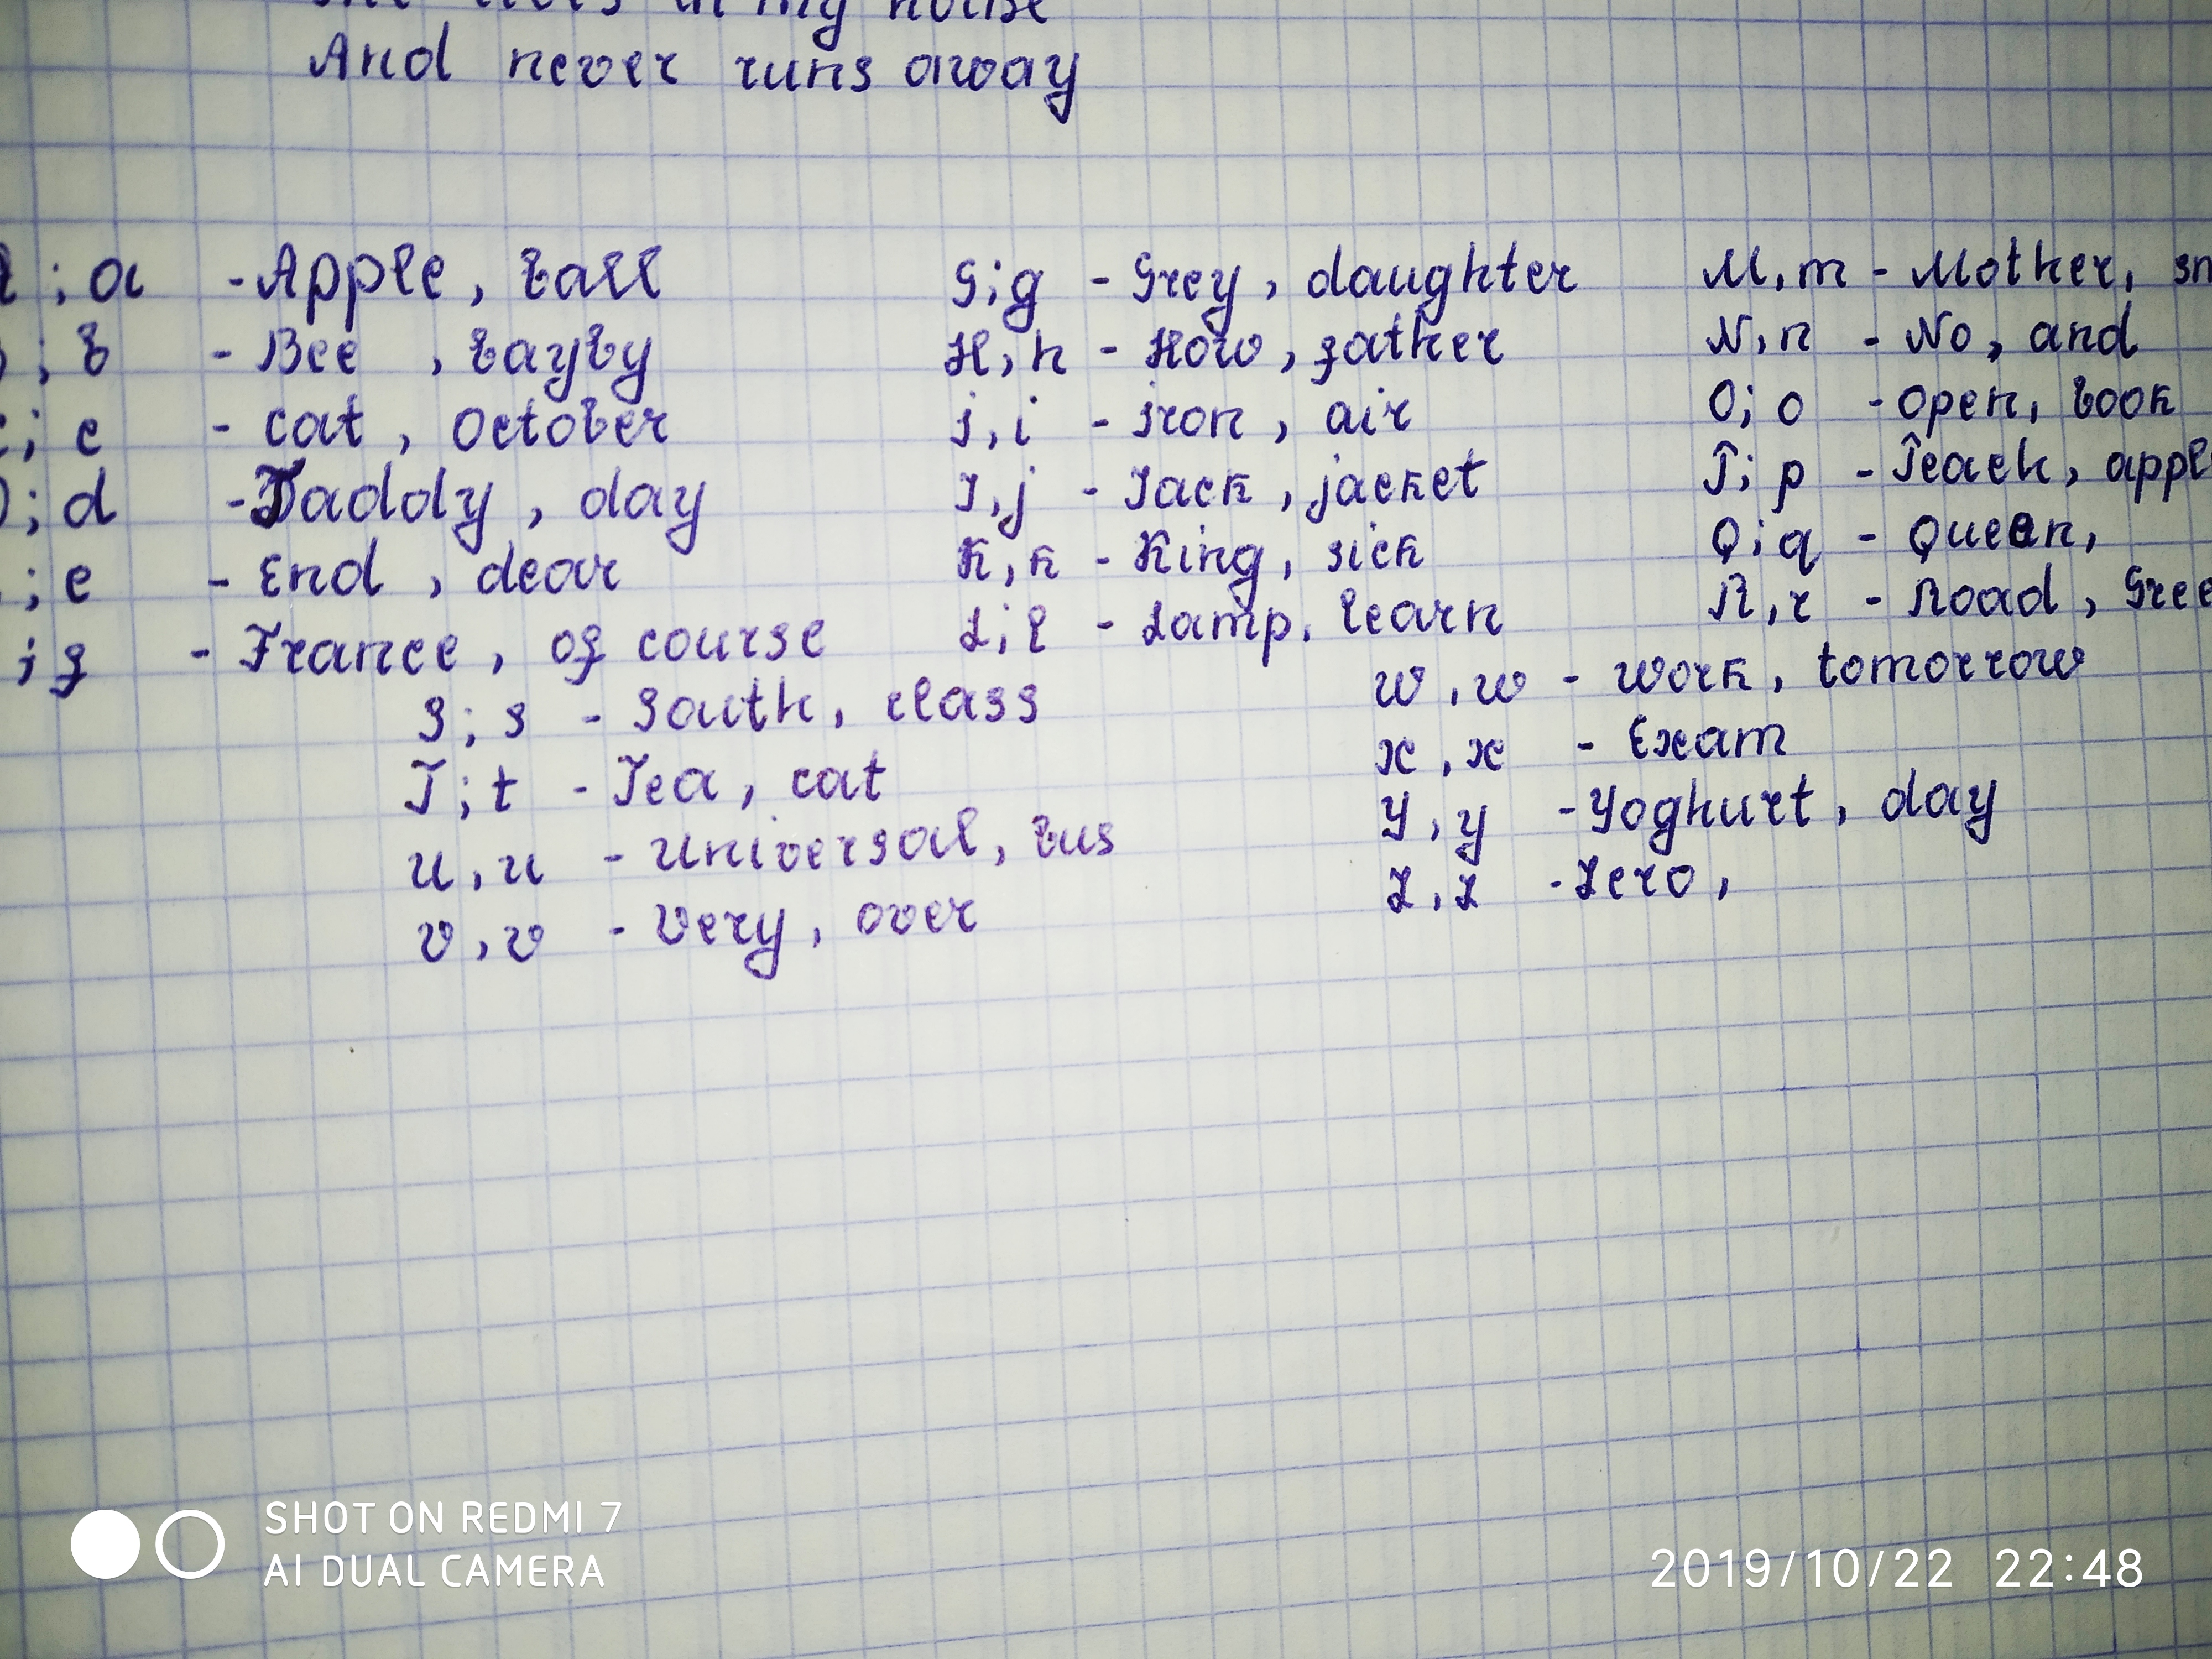 in my house
And never runs away
; a - Apple, ball
; b - Bee, bayby
; c - cat, October
; d - Daddy, day
; e - End, dear
; f - France, of course
S; s - South, class
T; t - Tea, cat
U, u - Universal, bus
V, v - Very, over
G; g - Grey, daughter
H, h - How, father
I, i - Iron, air
J, j - Jack, jacket
K, k - King, sick
L; l - Lamp, learn
M, m - Mother,
N, n - No, and
O; o - Open, book
P; p - Peach,
Q; q - Queen,
R, r - Road,
W, w - Work, tomorrow
X, x - Exam
Y, y - Yoghurt, day
Z, z - Zero,
SHOT ON REDMI 7
AI DUAL CAMERA
2019/10/22 22:48